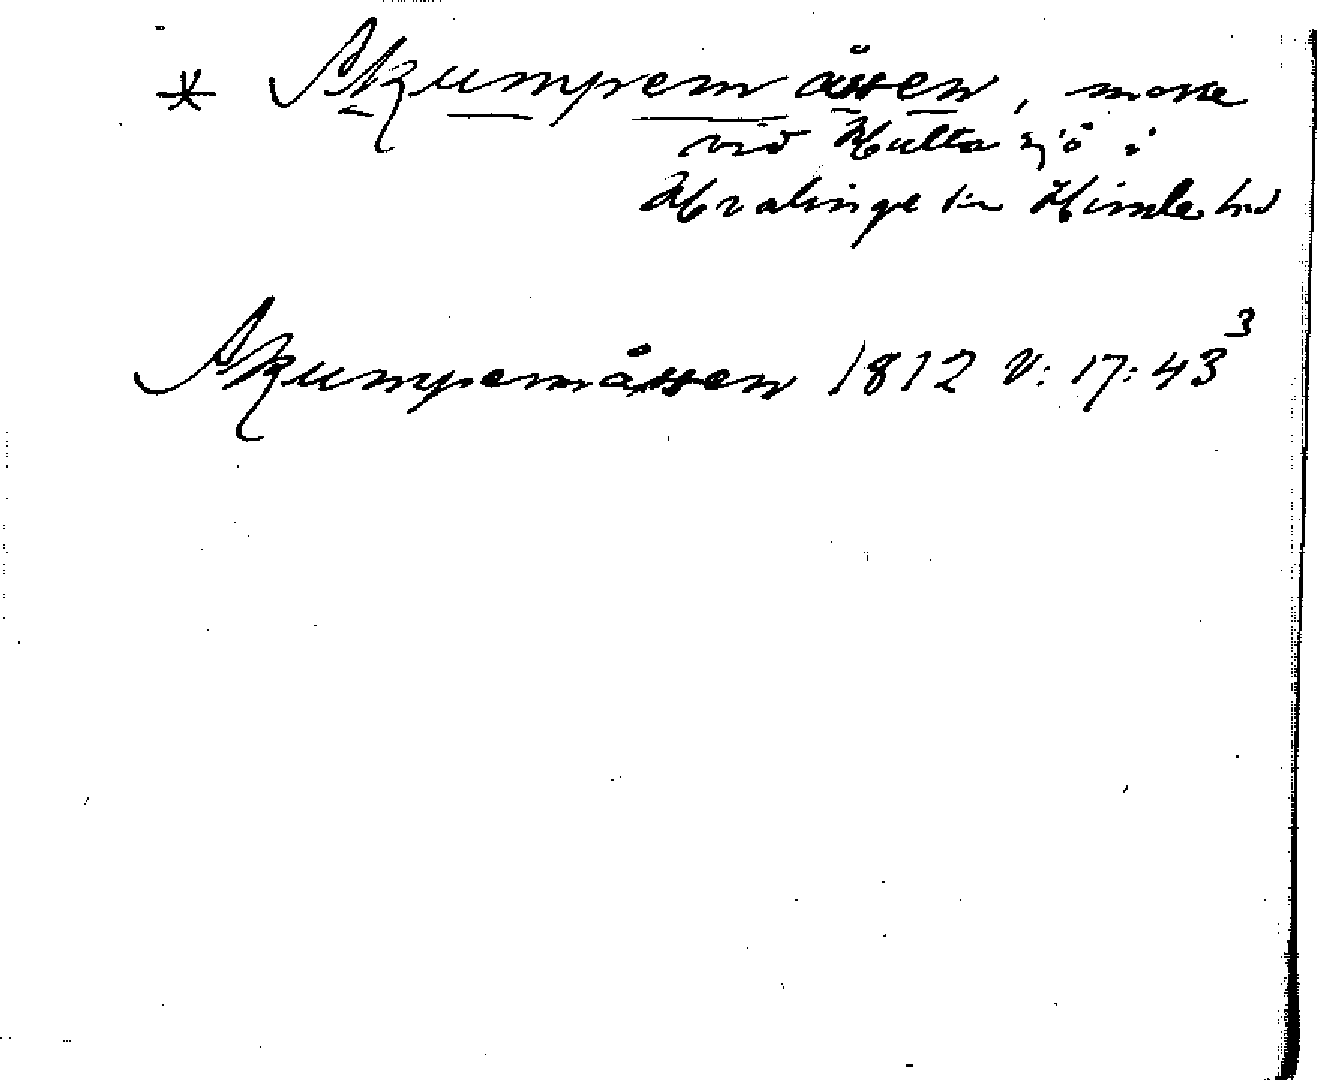 * Skumpemåssen, mosse
vid Hulta sjö i
Hvalinge sn Himle hd
Skumpemåssen 1812 V: 17: 43³